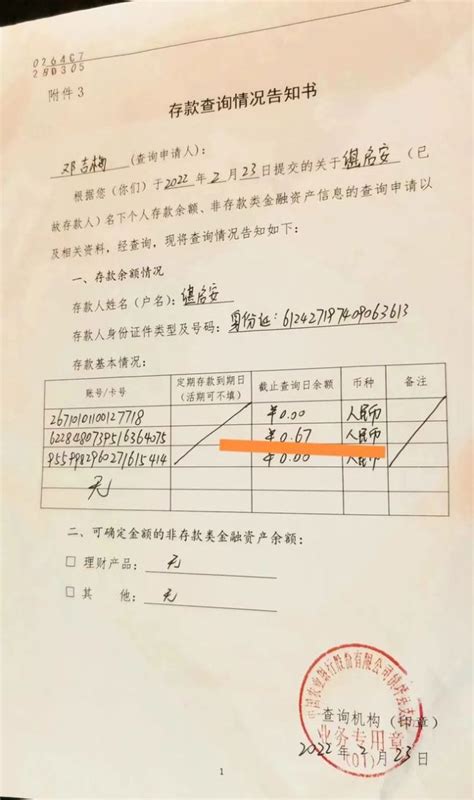 0264C7
28D305
附件3
存款查询情况告知书
邓吉梅(查询申请人):
根据您(你们)于2022年2月23日提交的关于谌启安(已
故存款人)名下个人存款余额、非存款类金融资产信息的查询申请以
及相关资料,经查询,现将查询情况告知如下:
一、存款余额情况
存款人姓名(户名):谌启安
存款人身份证件类型及号码:身份证:612427197409063613
存款基本情况:
账号/卡号 定期存款到期日(活期可不填) 截止查询日余额 币种 备注
26710101100127718 ¥0.00 人民币
6228480739516364075 ¥0.67 人民币
9559982960271615414 ¥0.00 人民币
无
二、可确定金额的非存款类金融资产余额:
□ 理财产品:无
□ 其 他:无
中国农业银行股份有限公司镇坪县支行
查询机构(印章)
业务专用章
(01)
2022年2月23日
1